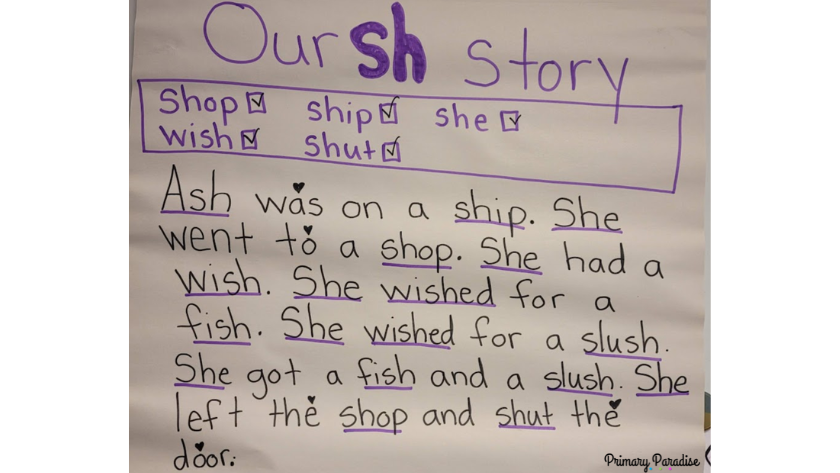 Our sh Story
shop ☑ ship ☑ she ☑
wish ☑ shut ☑
Ash was on a ship. She
went to a shop. She had a
wish. She wished for a
fish. She wished for a slush.
She got a fish and a slush. She
left the shop and shut the
door.
Primary Paradise